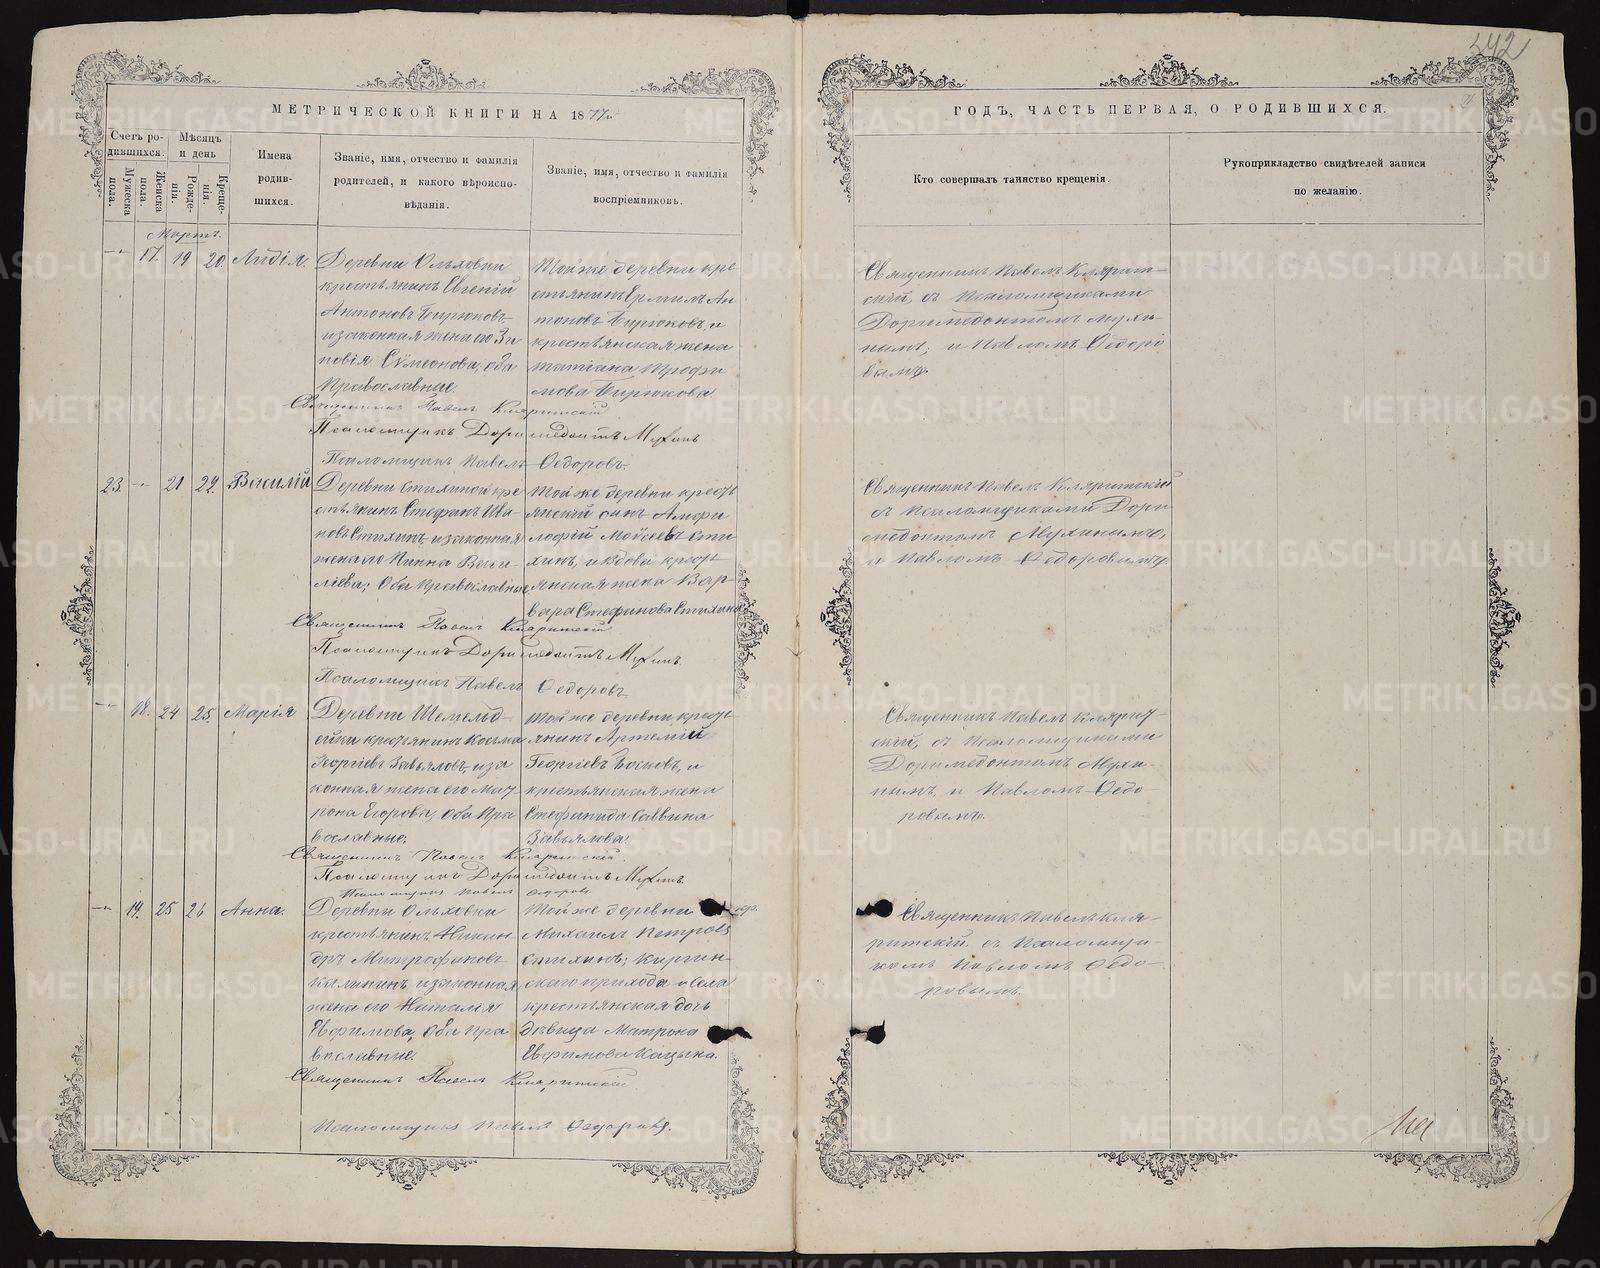 342
МЕТРИЧЕСКОЙ КНИГИ НА 1877
ГОДЪ, ЧАСТЬ ПЕРВАЯ, О РОДИВШИХСЯ.
Счетъ ро-
дившихся.
Мужеска
пола.
Женска
пола.
Мѣсяцъ
и день
Рожде-
нія.
Креще-
нія.
Имена
родив-
шихся.
Званіе, имя, отчество и фамилія
родителей, и какого вѣроиспо-
вѣданія.
Званіе, имя, отчество и фамилія
воспріемниковъ.
Кто совершалъ таинство крещенія.
Рукоприкладство свидѣтелей записи
по желанію.
Мартъ.
17. 19 20. Лидія.
Деревни Ольховки
крестьянинъ Евгеній
Антоновъ Бирюковъ
и законная жена его Зи
новія Сѵмеонова; оба
Православные.
Той же деревни кре
стьянинъ Ермилъ Ан
тоновъ Бирюковъ, и
крестьянская жена
Татіана Трофи
мова Бирюкова
Священникъ Павелъ Кляритскій
Псаломщикъ Доримедонтъ Мухинъ
Псаломщикъ Павелъ Ѳедоровъ.
Священникъ Павелъ Клярит-
скій, съ Псаломщиками
Доримедонтомъ Мухи-
нымъ, и Павломъ Ѳедоро
вымъ.
23. 21 22. Василій
Деревни Стихиной кре
стьянинъ Стефанъ Ива-
новъ Стихинъ, и законная
жена его Нинна Васи-
ліева; Оба Православные
Той же деревни кресть
янскій сынъ Амфи
лофій Моѵсеевъ Сти
хинъ, и вдова кресть
янская жена Вар-
вара Стефанова Стихина
Священникъ Павелъ Кляритскій
Псаломщикъ Доримедонтъ Мухинъ.
Псаломщикъ Павелъ Ѳедоровъ
Священникъ Павелъ Кляритскій
съ Псаломщиками Дори
медонтомъ Мухинымъ,
и Павломъ Ѳедоровымъ.
18. 24 25 Марія
Деревни Шемельд-
ейки крестьянинъ Косьма
Георгіевъ Завьяловъ, и за
конная жена его Мат
рона Егорова, Оба Пра
вославные.
Той же деревни кресть
янинъ Артемій
Георгіевъ Босковъ, и
крестьянская жена
Стефанида Саввина
Завьялова.
Священникъ Павелъ Кляритскій.
Псаломщикъ Доримедонтъ Мухинъ.
Псаломщикъ Павелъ Ѳедоровъ
Священникъ Павелъ Клярит-
скій, съ Псаломщиками
Доримедонтомъ Мухи-
нымъ, и Павломъ Ѳедо
ровымъ.
19. 25 26 Анна.
Деревни Ольховки
крестьянинъ Никан
дръ Митрофановъ
Калининъ, и законная
жена его Наталія
Ефимова, Оба Пра
вославные
Той же деревни
Михаилъ Петровъ
Стихинъ; Киргин-
скаго прихода и села
крестьянская дочь
дѣвица Матрона
Евфимова Кацына.
Священникъ Павелъ Кляритскій
Псаломщикъ Павелъ Ѳедоровъ.
Священникъ Павелъ Кля-
ритскій, съ Псаломщи-
комъ Павломъ Ѳедо-
ровымъ.
METRIKI.GASO-URAL.RU